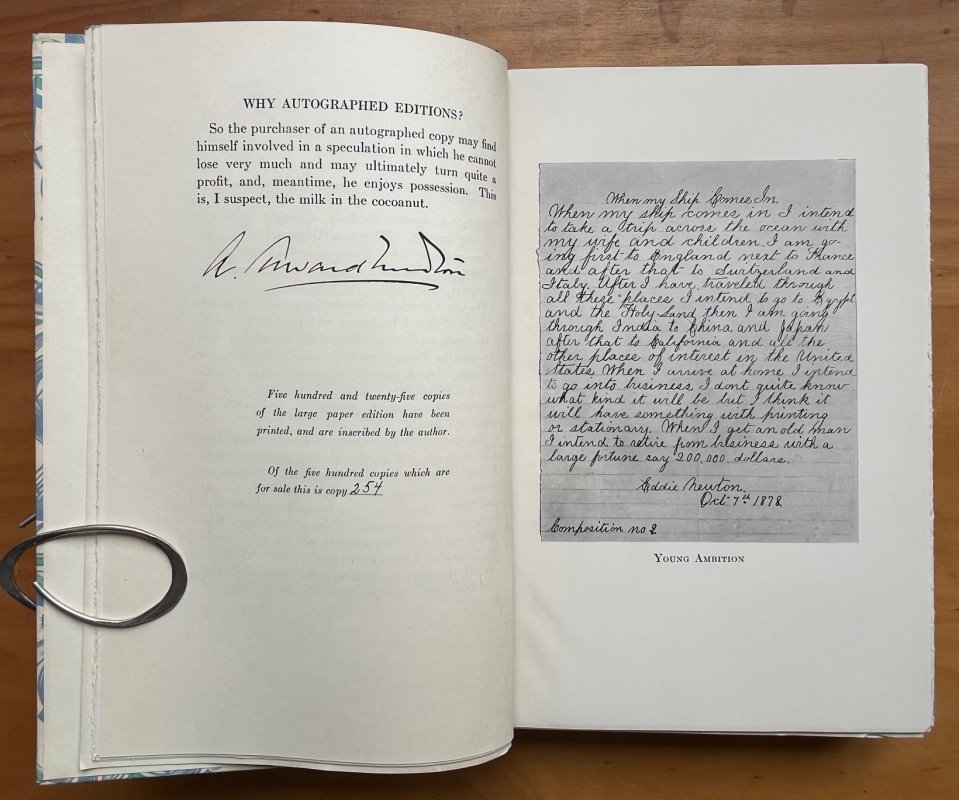 WHY AUTOGRAPHED EDITIONS?
So the purchaser of an autographed copy may find
himself involved in a speculation in which he cannot
lose very much and may ultimately turn quite a
profit, and, meantime, he enjoys possession. This
is, I suspect, the milk in the cocoanut.
A. Edward Newton
Five hundred and twenty-five copies
of the large paper edition have been
printed, and are inscribed by the author.
Of the five hundred copies which are
for sale this is copy 254
When my Ship Comes In.
When my ship comes in I intend
to take a trip across the ocean with
my wife and children. I am go-
ing first to England next to France
and after that to Switzerland and
Italy. After I have traveled through
all these places I intend to go to Egypt
and the Holy Land then I am going
through India to China and Japan
after that to California and all the
other places of interest in the United
States. When I arrive at home I intend
to go into business, I dont quite know
what kind it will be but I think it
will have something with printing
or stationary. When I get an old man
I intend to retire from business with a
large fortune say 200,000 dollars.
Eddie Newton.
Oct 7th 1878
Composition no 2
YOUNG AMBITION